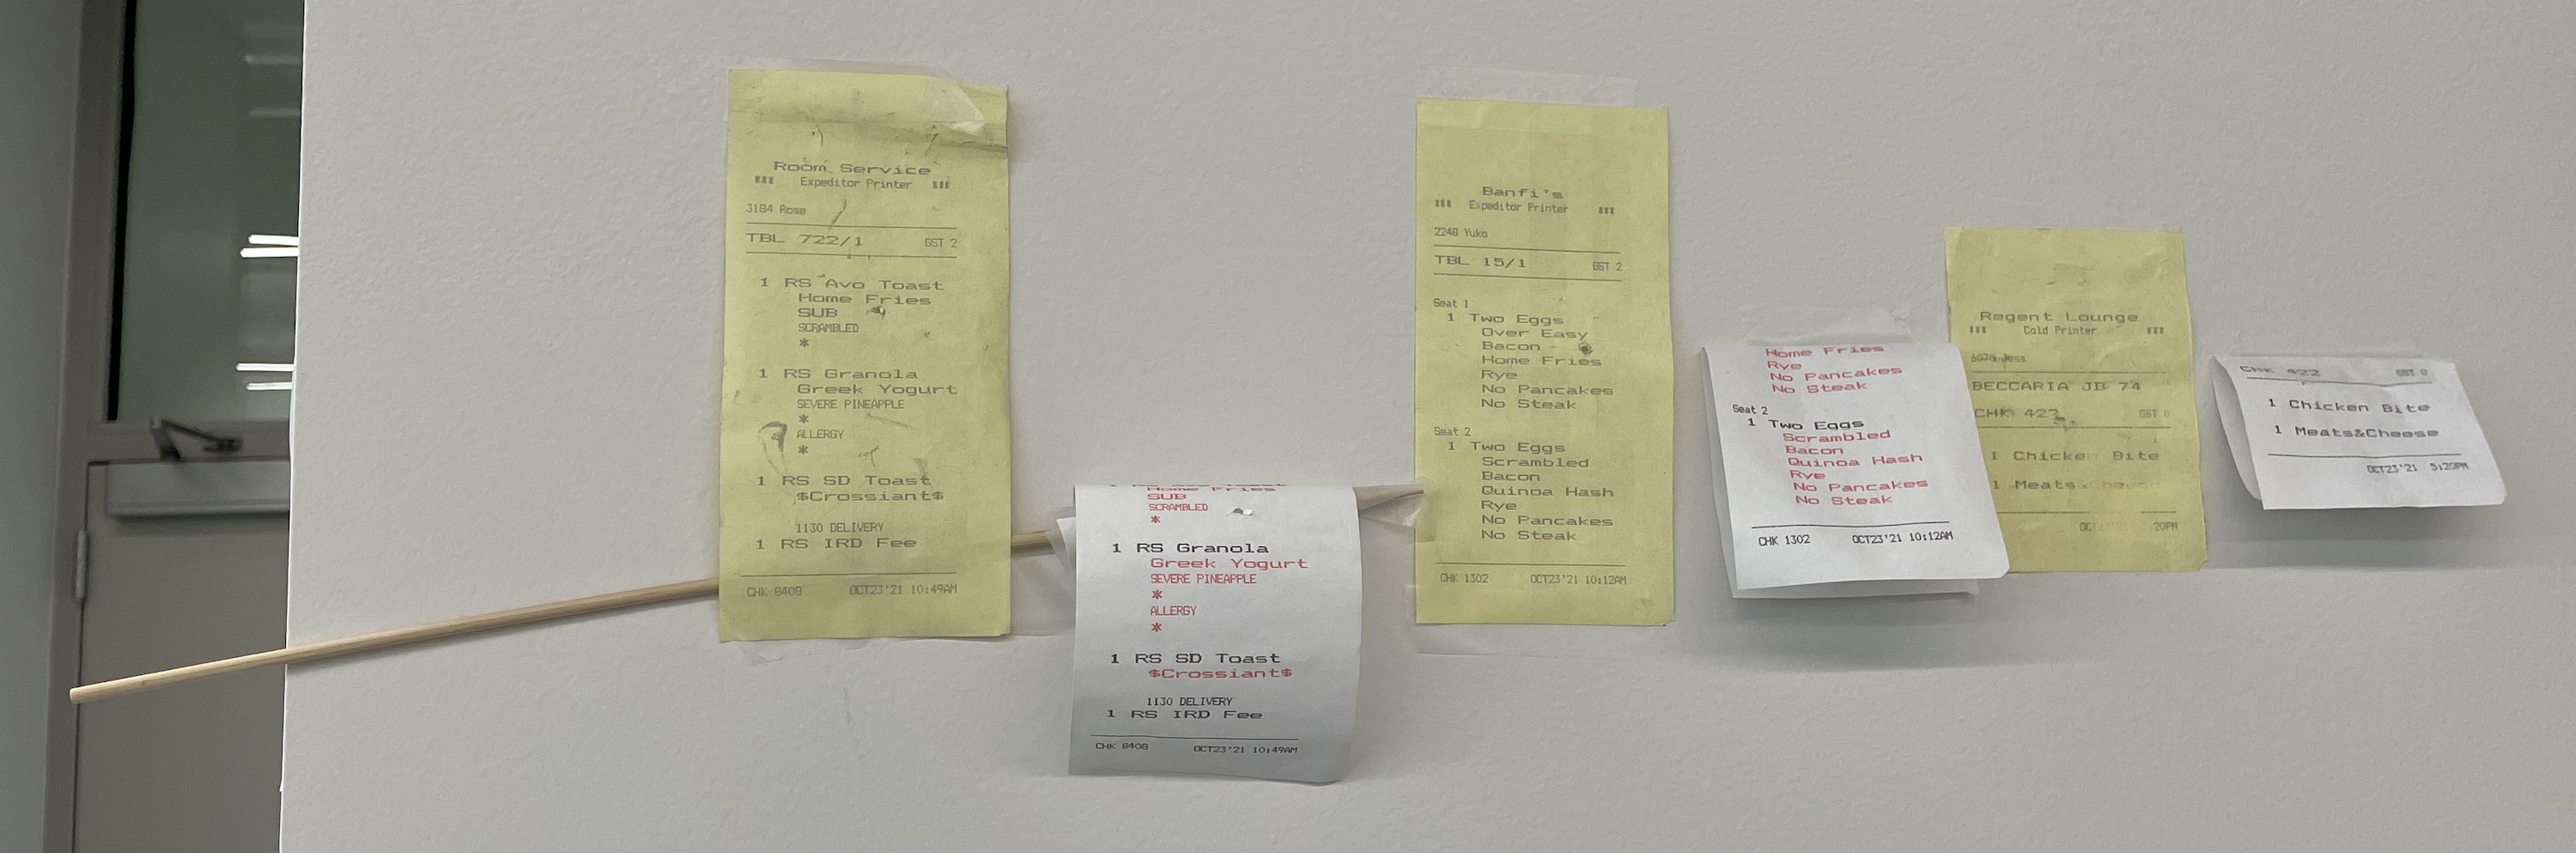 Room Service
*** Expeditor Printer ***
3184 Rose
TBL 722/1 GST 2
1 RS Avo Toast
Home Fries
SUB
SCRAMBLED
*
1 RS Granola
Greek Yogurt
SEVERE PINEAPPLE
*
ALLERGY
*
1 RS SD Toast
$Crossiant$
1130 DELIVERY
1 RS IRD Fee
CHK 8408 OCT23'21 10:49AM
Home Fries
SUB
SCRAMBLED
*
1 RS Granola
Greek Yogurt
SEVERE PINEAPPLE
*
ALLERGY
*
1 RS SD Toast
$Crossiant$
1130 DELIVERY
1 RS IRD Fee
CHK 8408 OCT23'21 10:49AM
Banfi's
*** Expeditor Printer ***
2248 Yuko
TBL 15/1 GST 2
Seat 1
1 Two Eggs
Over Easy
Bacon
Home Fries
Rye
No Pancakes
No Steak
Seat 2
1 Two Eggs
Scrambled
Bacon
Quinoa Hash
Rye
No Pancakes
No Steak
CHK 1302 OCT23'21 10:12AM
Home Fries
Rye
No Pancakes
No Steak
Seat 2
1 Two Eggs
Scrambled
Bacon
Quinoa Hash
Rye
No Pancakes
No Steak
CHK 1302 OCT23'21 10:12AM
Regent Lounge
*** Cold Printer ***
Jess
BECCARIA JB 74
CHK GST 0
1 Chicken Bite
1 Meats
20PM
CHK 422 GST 0
1 Chicken Bite
1 Meats&Cheese
OCT23'21 5:20PM